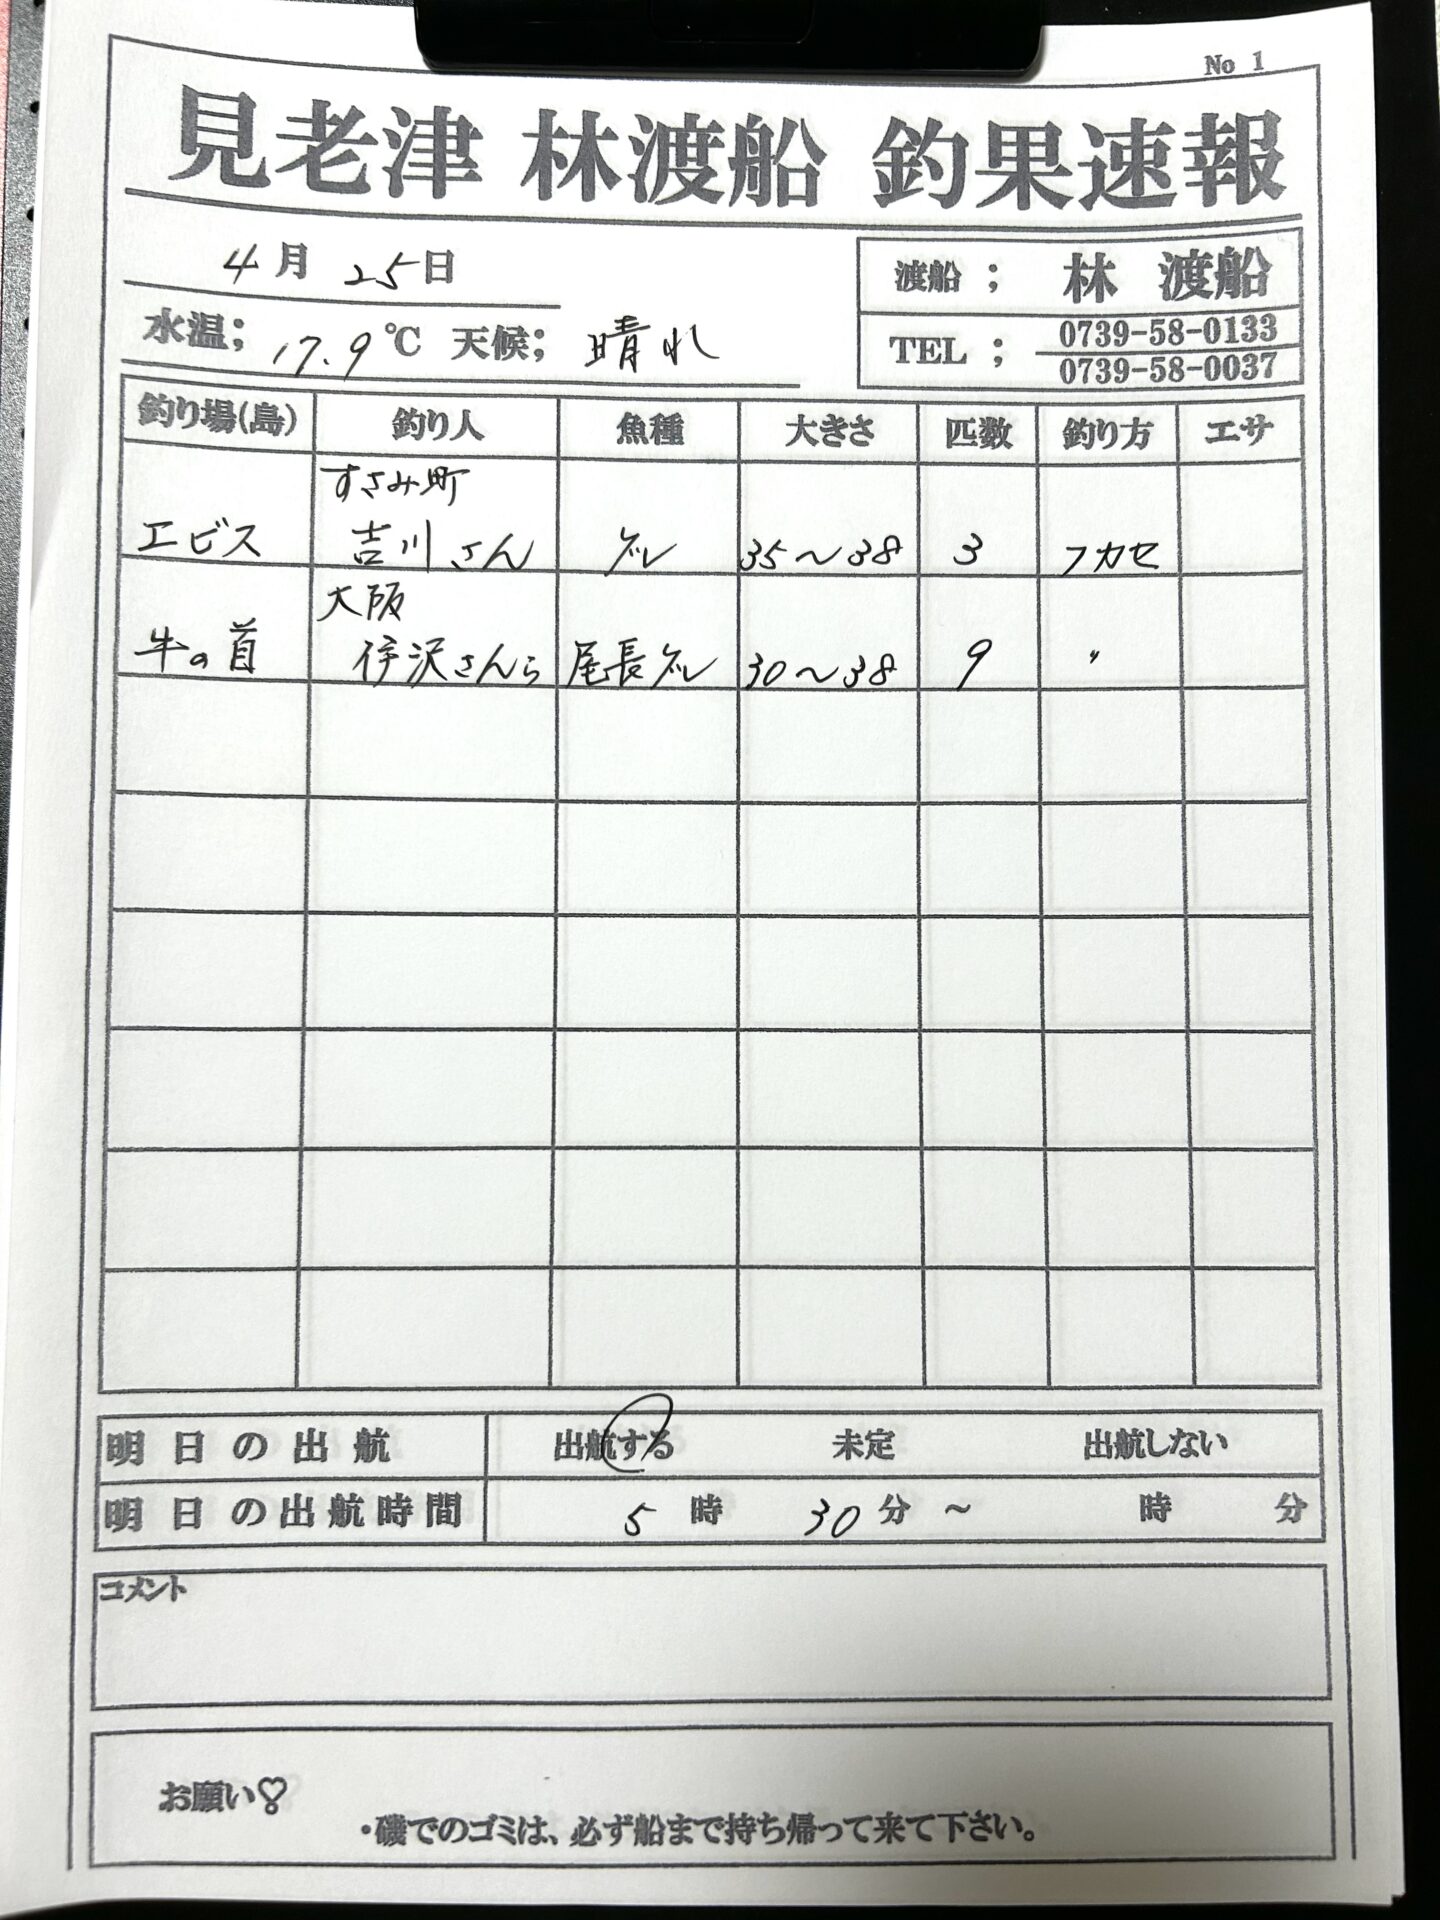 No 1
見老津 林渡船 釣果速報
4月 25日
渡船 ; 林 渡船
水温; 17.9℃ 天候; 晴れ
TEL ; 0739-58-0133
0739-58-0037
釣り場(島) 釣り人 魚種 大きさ 匹数 釣り方 エサ
すさみ町
エビス 吉川さん グレ 35〜38 3 フカセ
大阪
牛の首 伊沢さんら 尾長グレ 30〜38 9 〃
明日の出航 出航する 未定 出航しない
明日の出航時間 5時 30分 〜 時 分
コメント
お願い♡
・磯でのゴミは、必ず船まで持ち帰って来て下さい。